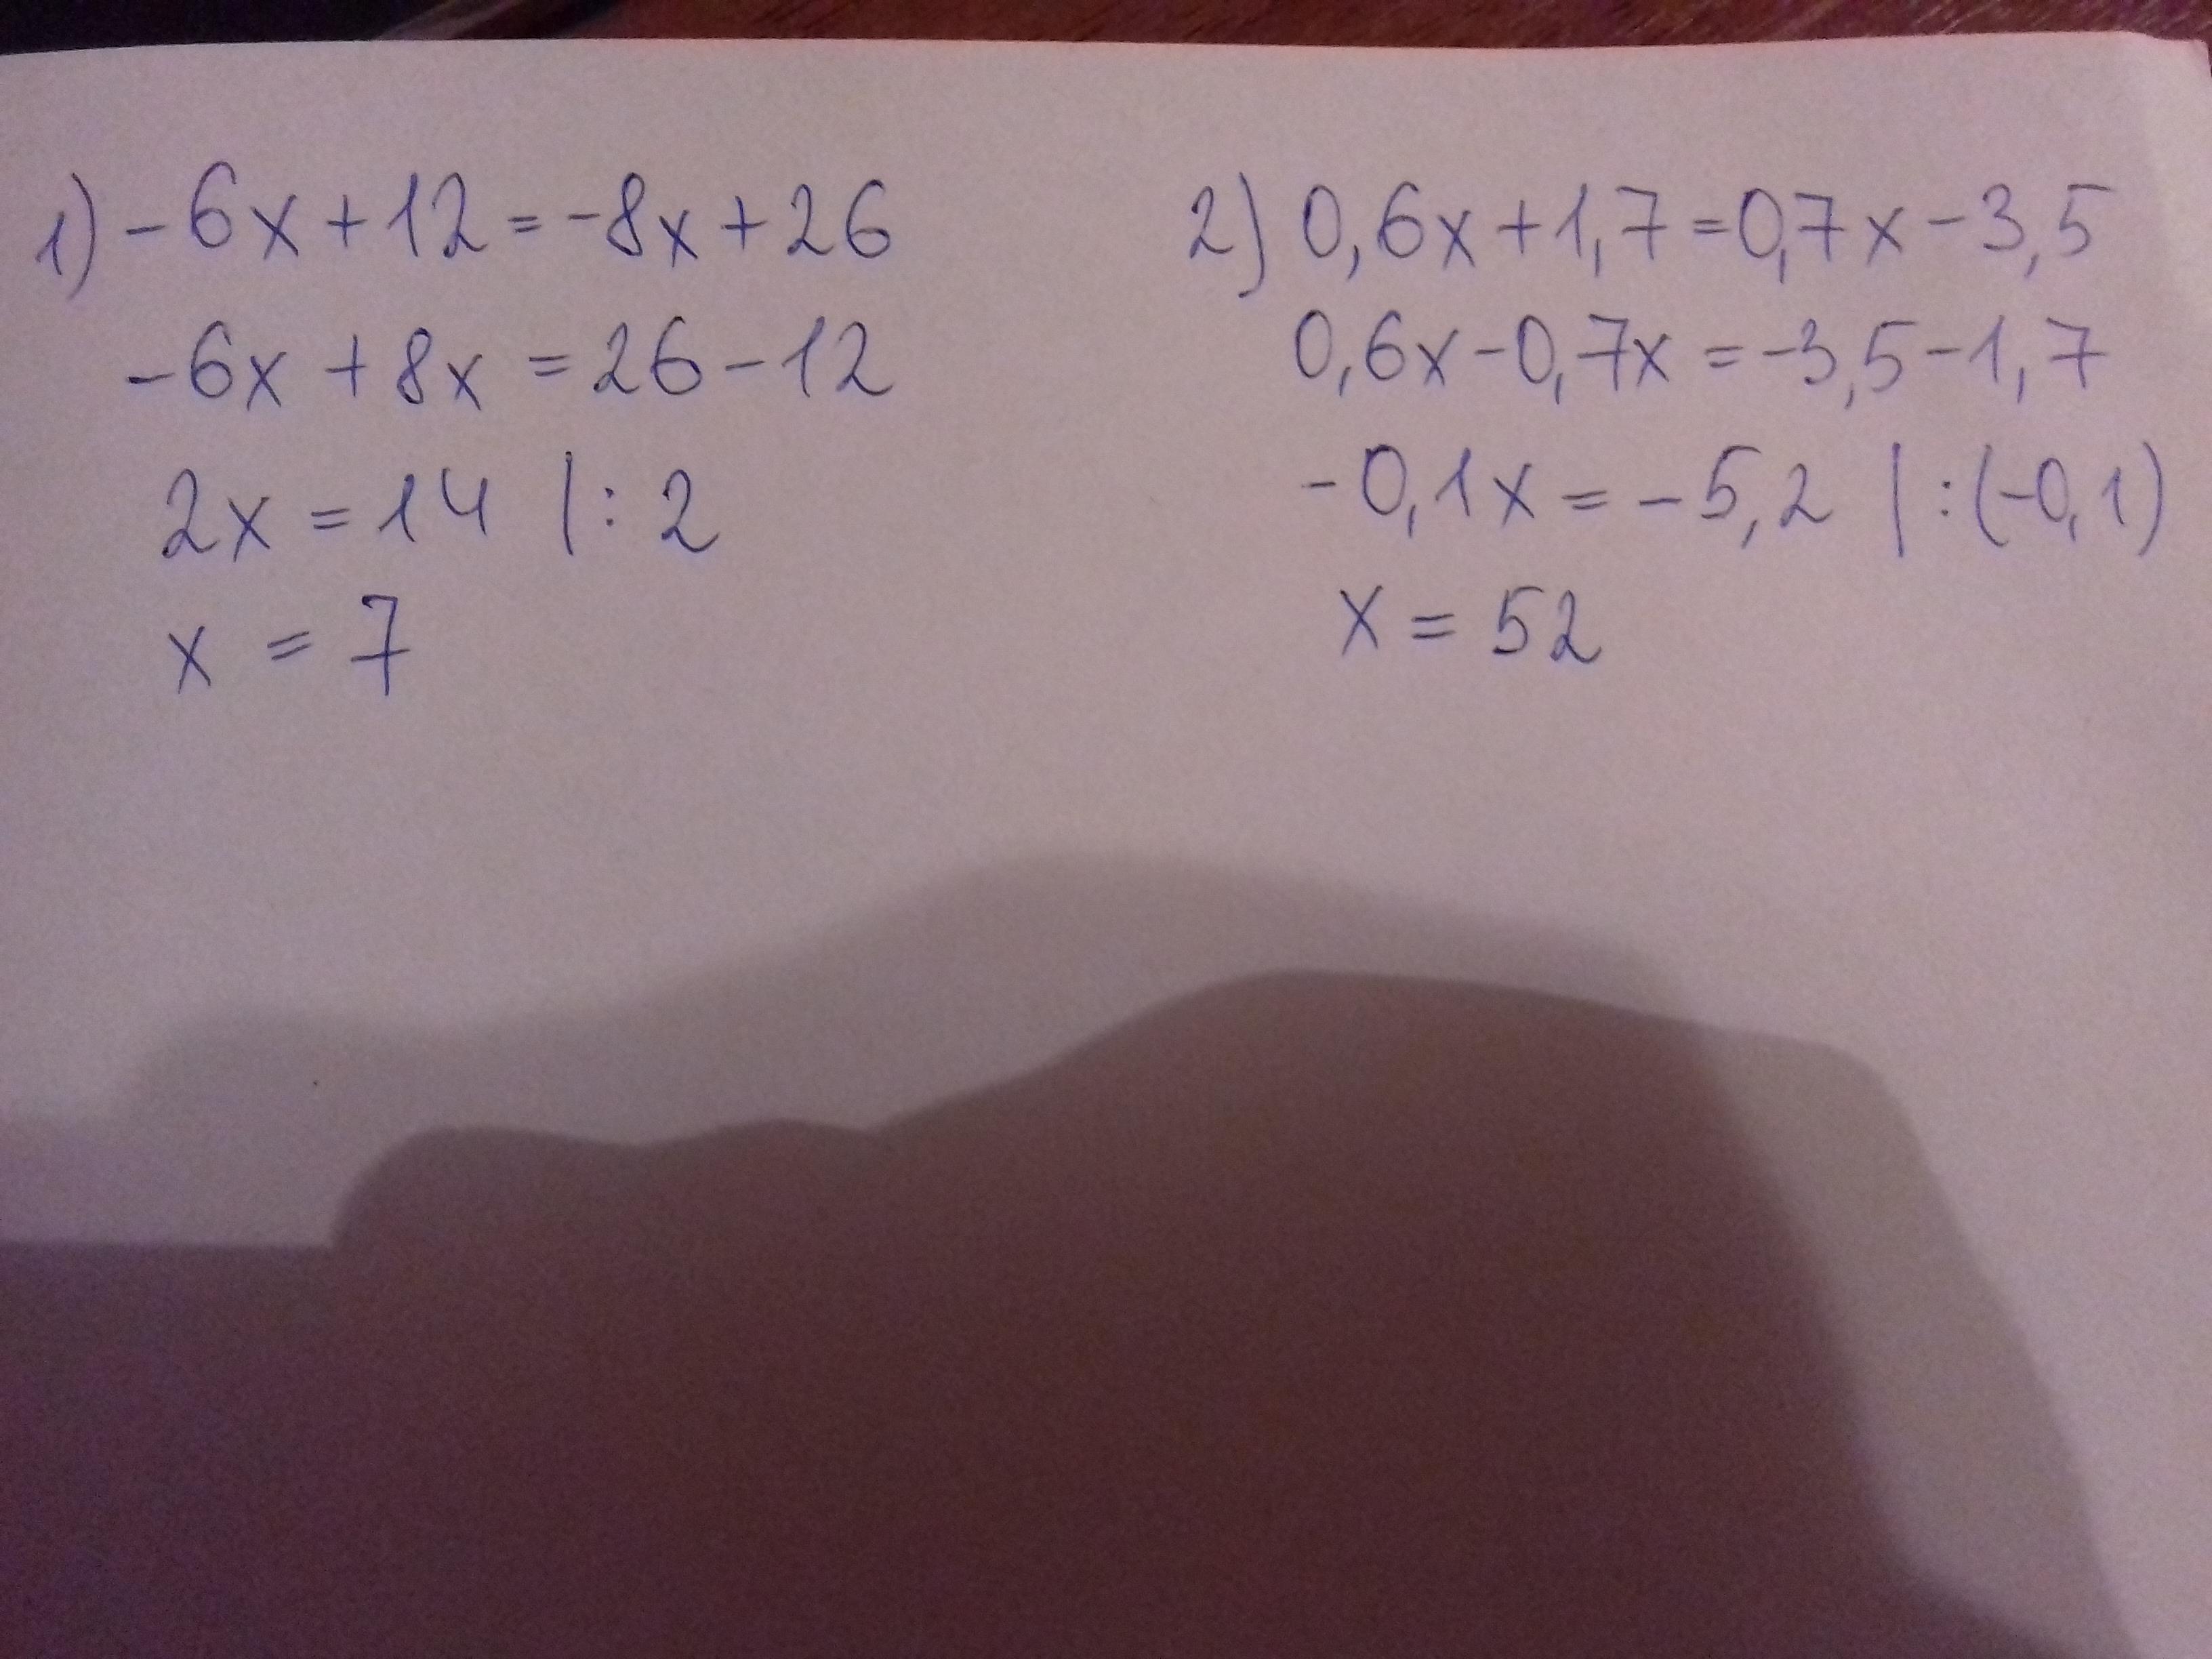 1) -6x+12=-8x+26
-6x+8x=26-12
2x=14 |:2
x=7
2) 0,6x+1,7=0,7x-3,5
0,6x-0,7x=-3,5-1,7
-0,1x=-5,2 |:(-0,1)
x=52